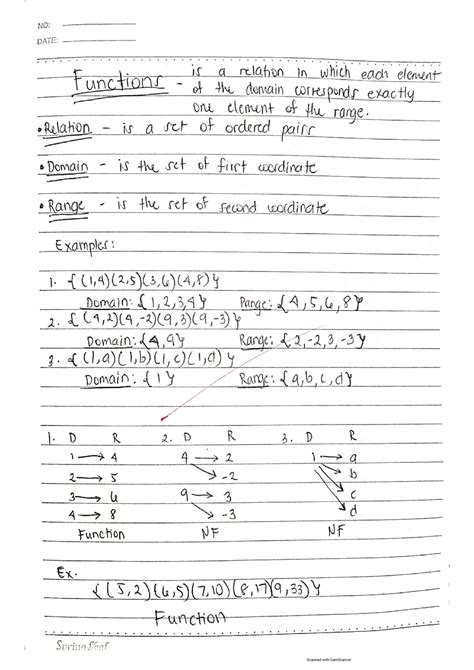 NO:
DATE:
Functions - is a relation in which each element
of the domain corresponds exactly
one element of the range.
•Relation - is a set of ordered pairs
•Domain - is the set of first coordinate
•Range - is the set of second coordinate
Examples:
1. {(1,4)(2,5)(3,6)(4,8)}
Domain: {1,2,3,4} Range: {4,5,6,8}
2. {(4,2)(4,-2)(9,3)(9,-3)}
Domain: {4,9} Range: {2,-2,3,-3}
3. {(1,a)(1,b)(1,c)(1,d)}
Domain: {1} Range: {a,b,c,d}
1. D R 2. D R 3. D R
1 → 4 4 → 2 1 → a
2 → 5 → -2 → b
3 → 6 9 → 3 → c
4 → 8 → -3 → d
Function NF NF
Ex.
{(5,2)(6,5)(7,10)(8,17)(9,33)}
Function
Scanned with CamScanner